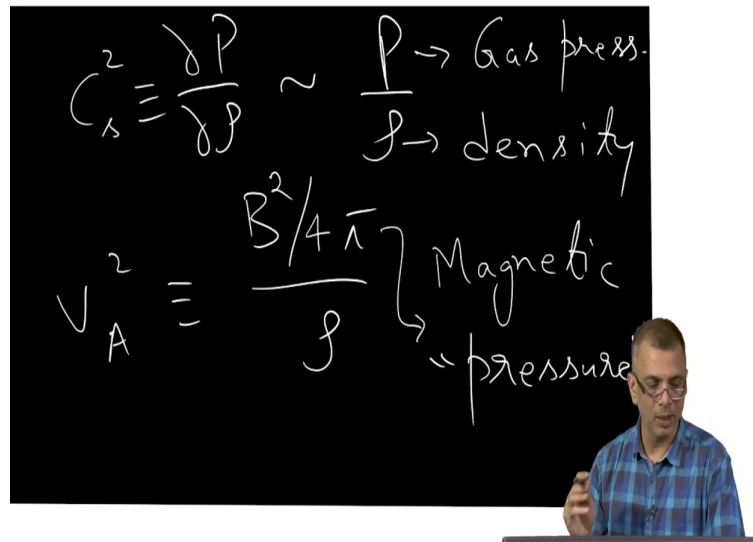 C_s² ≡ γP/γρ ~ P/ρ
P → Gas press.
ρ → density
V_A² ≡ (B²/4π)/ρ
Magnetic
"pressure